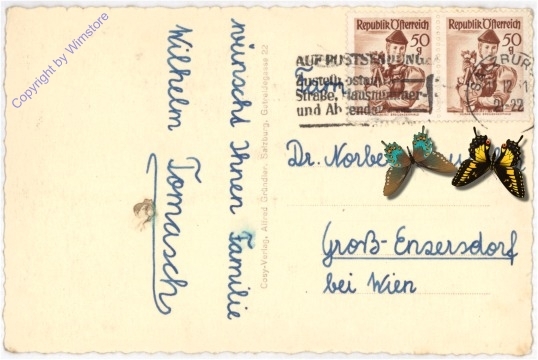 Copyright by Wimstore
wünscht Ihnen Familie
Wilhelm Tomasch
Cosy-Verlag, Alfred Gründler, Salzburg, Getreidegasse 22
Republik Österreich
50
g
Republik Österreich
50
g
AUF POSTSENDUNG
Straße, Hausnummer
und Absender
Fam
Dr. Norbe
Groß-Enzersdorf
bei Wien